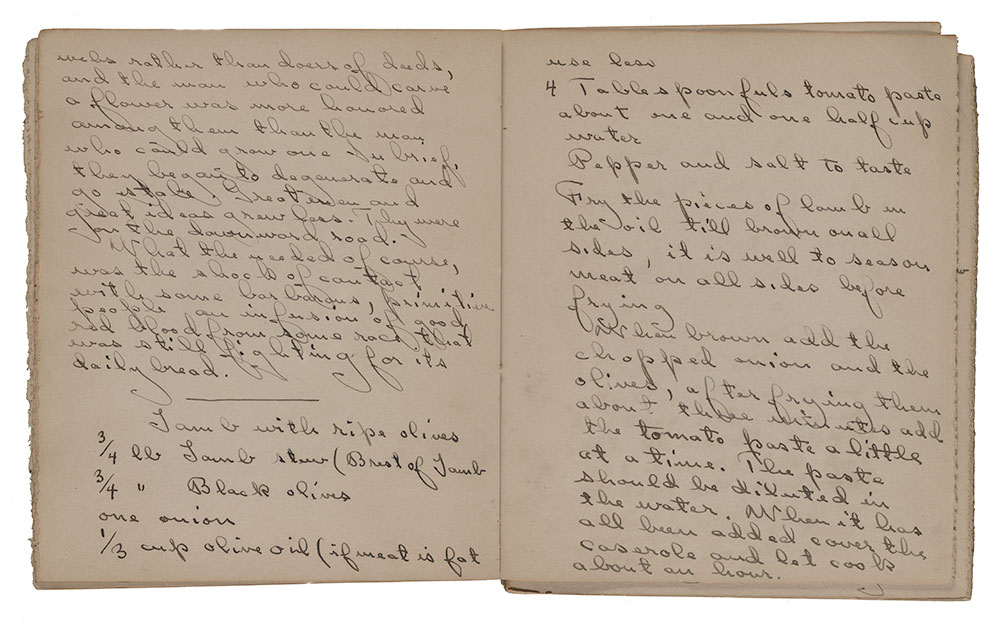 rather than doers of deeds,
and the man who could carve
a flower was more honored
among them than the man
who could grow one. In brief,
they began to degenerate and
go stale. Great men and
great ideas grew less. They were
on the downward road.
What the needed of course,
was the shock of contact
with some barbarous, primitive
people an infusion of good
red blood from some race that
was still fighting for its
daily bread.
Lamb with ripe olives
3/4 lb Lamb stew (Brest of Lamb
3/4 " Black olives
one onion
1/3 cup olive oil (if meat is fat
use less
4 Tablespoonfuls tomato paste
about one and one half cup
water
Pepper and salt to taste
Fry the pieces of lamb in
the oil till brown on all
sides, it is well to season
meat on all sides before
frying
When brown add the
chopped onion and the
olives, after frying them
about three minutes add
the tomato paste a little
at a time. The paste
should be diluted in
the water. When it has
all been added cover the
caserole and let cook
about an hour.